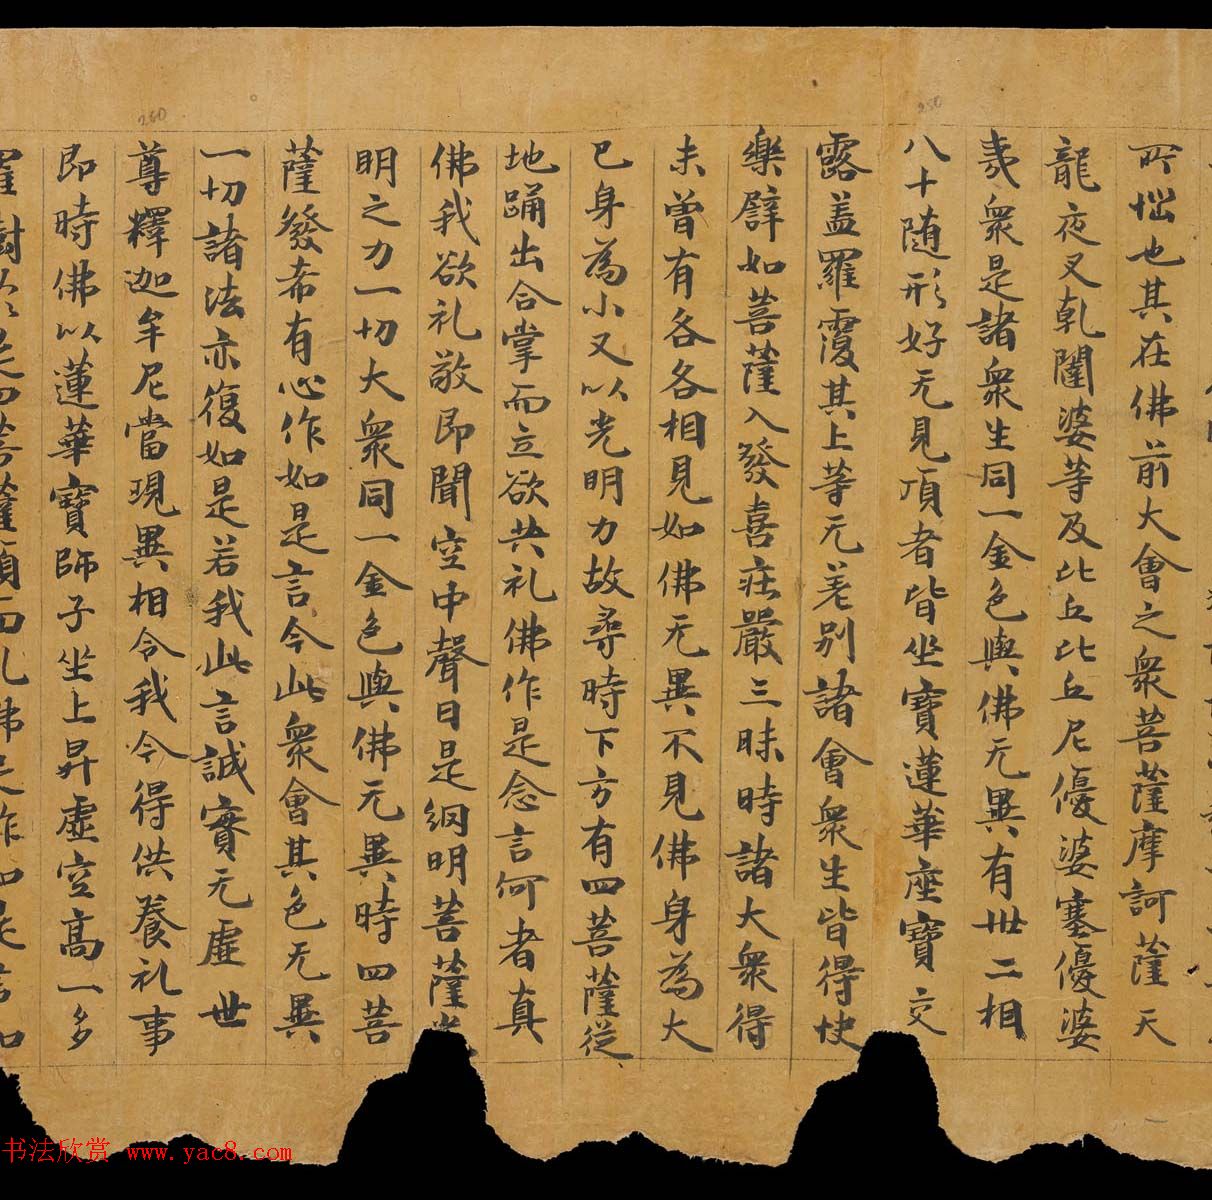 所惱也其在佛前大會之衆菩薩摩訶薩天
龍夜叉乹闥婆等及比丘比丘尼優婆塞優婆
夷衆是諸衆生同一金色與佛无異有卅二相
八十随形好无見頂者皆坐寶蓮華座寶交
露盖羅覆其上等无差別諸會衆生皆得快
樂譬如菩薩入發喜莊嚴三昧時諸大衆得
未曾有各各相見如佛无異不見佛身為大
已身為小又以光明力故尋時下方有四菩薩從
地踊出合掌而立欲共礼佛作是念言何者真
佛我欲礼敬即聞空中聲曰是網明菩薩光
明之力一切大衆同一金色與佛无異時四菩
薩發希有心作如是言今此衆會其色无異
一切諸法亦復如是若我此言誠實无虛世
尊釋迦牟尼當現異相令我今得供養礼事
即時佛以蓮華寶師子坐上昇虛空高一多
羅樹
250
260
书法欣赏 www.yac8.com